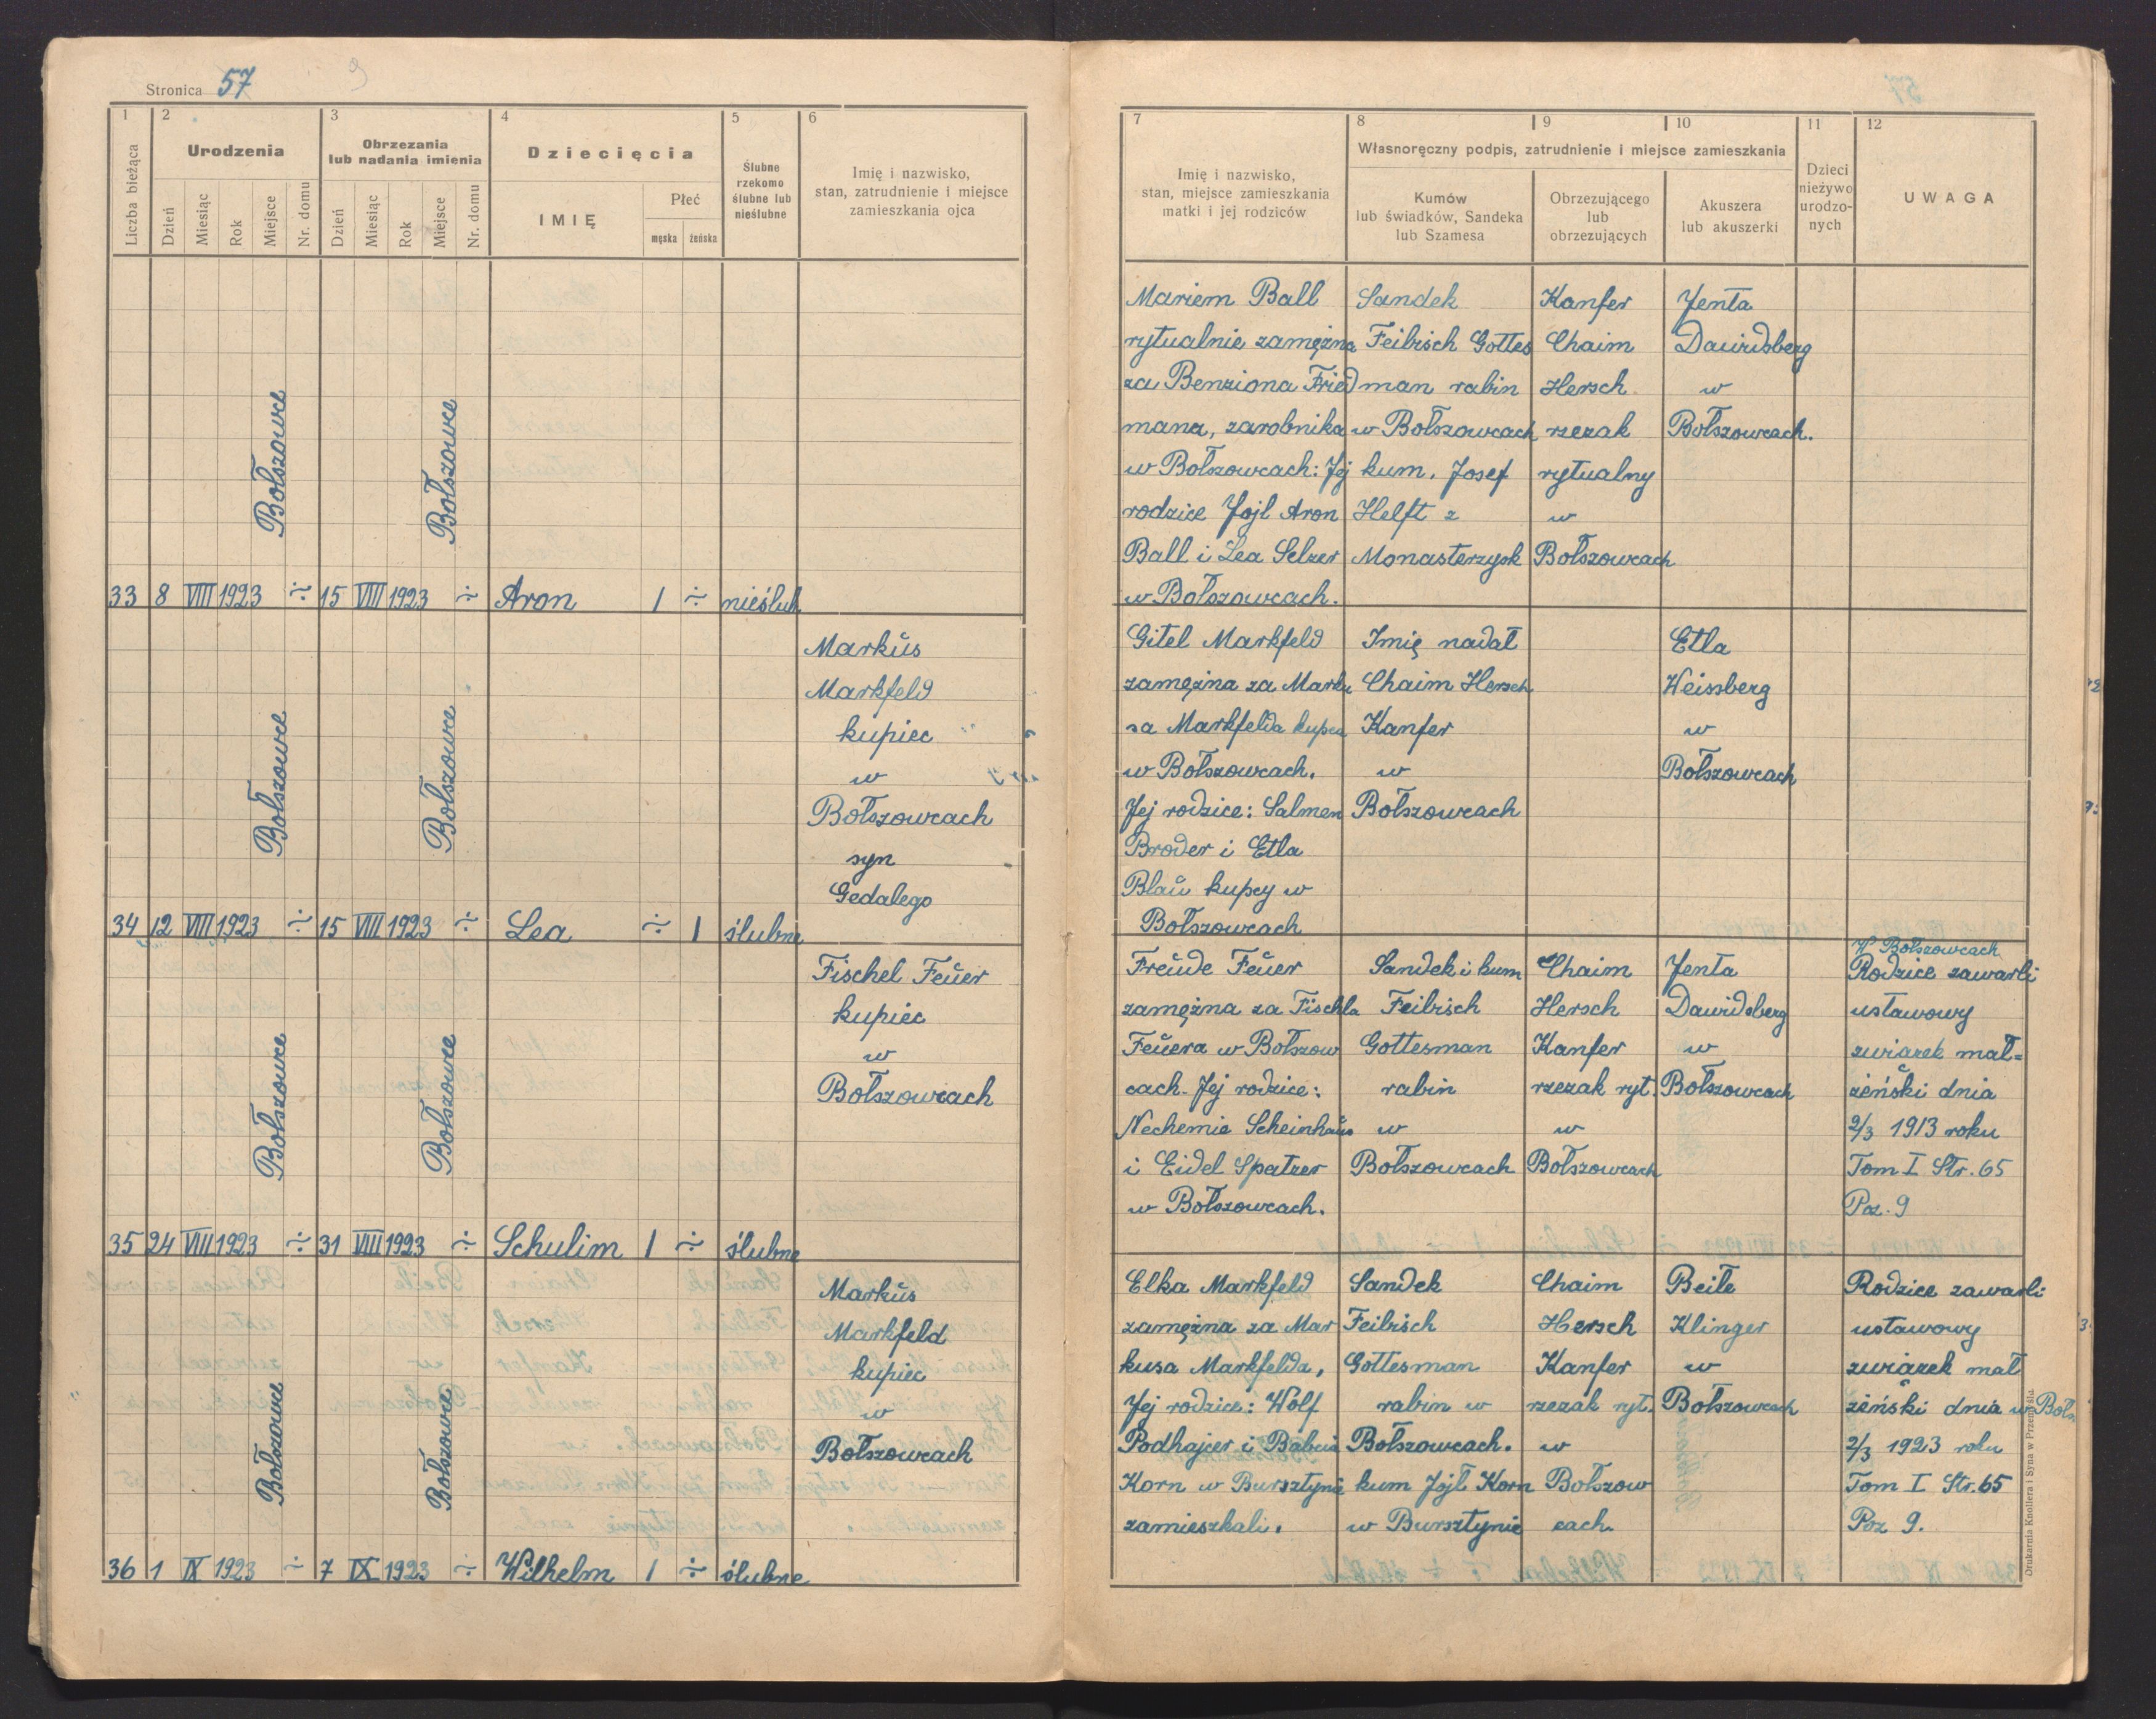 Stronica 57
1 2 3 4 5 6
Liczba bieżąca
Urodzenia
Dzień Miesiąc Rok Miejsce Nr. domu
Obrzezania
lub nadania imienia
Dzień Miesiąc Rok Miejsce Nr. domu
Dziecięcia
IMIĘ
Płeć
męska żeńska
Ślubne
rzekomo
ślubne lub
nieślubne
Imię i nazwisko,
stan, zatrudnienie i miejsce
zamieszkania ojca
Bołszowce Bołszowce
33 8 VIII 1923 ÷ 15 VIII 1923 ÷ Aron 1 ÷ nieślub
Markŭs
Markfeld
kupiec
w
Bołszowcach
syn
Gedalego
Bołszowce Bołszowce
34 12 VIII 1923 ÷ 15 VIII 1923 ÷ Lea ÷ 1 ślubne
Fischel Feŭer
kupiec
w
Bołszowcach
Bołszowce Bołszowce
35 24 VIII 1923 ÷ 31 VIII 1923 ÷ Schulim 1 ÷ ślubne
Markŭs
Markfeld
kupiec
w
Bołszowcach
Bołszowce Bołszowce
36 1 IX 1923 ÷ 7 IX 1923 ÷ Wilhelm 1 ÷ ślubne
7 8 9 10 11 12
Imię i nazwisko,
stan, miejsce zamieszkania
matki i jej rodziców
Własnoręczny podpis, zatrudnienie i miejsce zamieszkania
Kumów
lub świadków, Sandeka
lub Szamesa
Obrzezującego
lub
obrzezujących
Akuszera
lub akuszerki
Dzieci
nieżywo
urodzo-
nych
UWAGA
Mariem Ball
rytualnie zamężna
za Benziona Fried
mana, zarobnika
w Bołszowcach: Jej
rodzice Jojl Aron
Ball i Lea Selzer
w Bołszowcach.
Sandek
Feibisch Gottes
man rabin
w Bołszowcach
kum. Josef
Helft z
Monasterzysk
Kanfer
Chaim
Hersch
rzezak
rytualny
w
Bołszowcach
Jenta
Dawidsberg
w
Bołszowcach.
Gitel Markfeld
zamężna za Marku
sa Markfelda kupca
w Bołszowcach.
Jej rodzice: Salmen
Broder i Etla
Blaŭ kupcy w
Bołszowcach
Imię nadał
Chaim Hersch
Kanfer
w
Bołszowcach
Etla
Weissberg
w
Bołszowcach
Freŭde Feŭer
zamężna za Fischla
Feŭera w Bołszow
cach. Jej rodzice:
Nechemie Scheinhaŭs
i Eidel Spatzer
w Bołszowcach.
Sandek i kum
Feibisch
Gottesman
rabin
w
Bołszowcach
Chaim
Hersch
Kanfer
rzezak ryt.
w
Bołszowcach
Jenta
Dawidsberg
w
Bołszowcach
W Bołszowcach
Rodzice zawarli
ustawowy
związek mał=
żeński dnia
2/3 1913 roku
Tom I Str. 65
Poz. 9
Elka Markfeld
zamężna za Mar
kusa Markfelda,
Jej rodzice: Wolf
Podhajcer i Babcia
Korn w Bursztynie
zamieszkali.
Sandek
Feibisch
Gottesman
rabin w
Bołszowcach.
kum Jojl Korn
w Bursztynie
Chaim
Hersch
Kanfer
rzezak ryt.
w
Bołszow
cach.
Beile
Klinger
w
Bołszowcach
Rodzice zawarli
ustawowy
związek mał
żeński dnia w Bołsz
2/3 1923 roku
Tom I Str. 65
Poz 9.
Drukarnia Knollera i Syna w Przemyślu